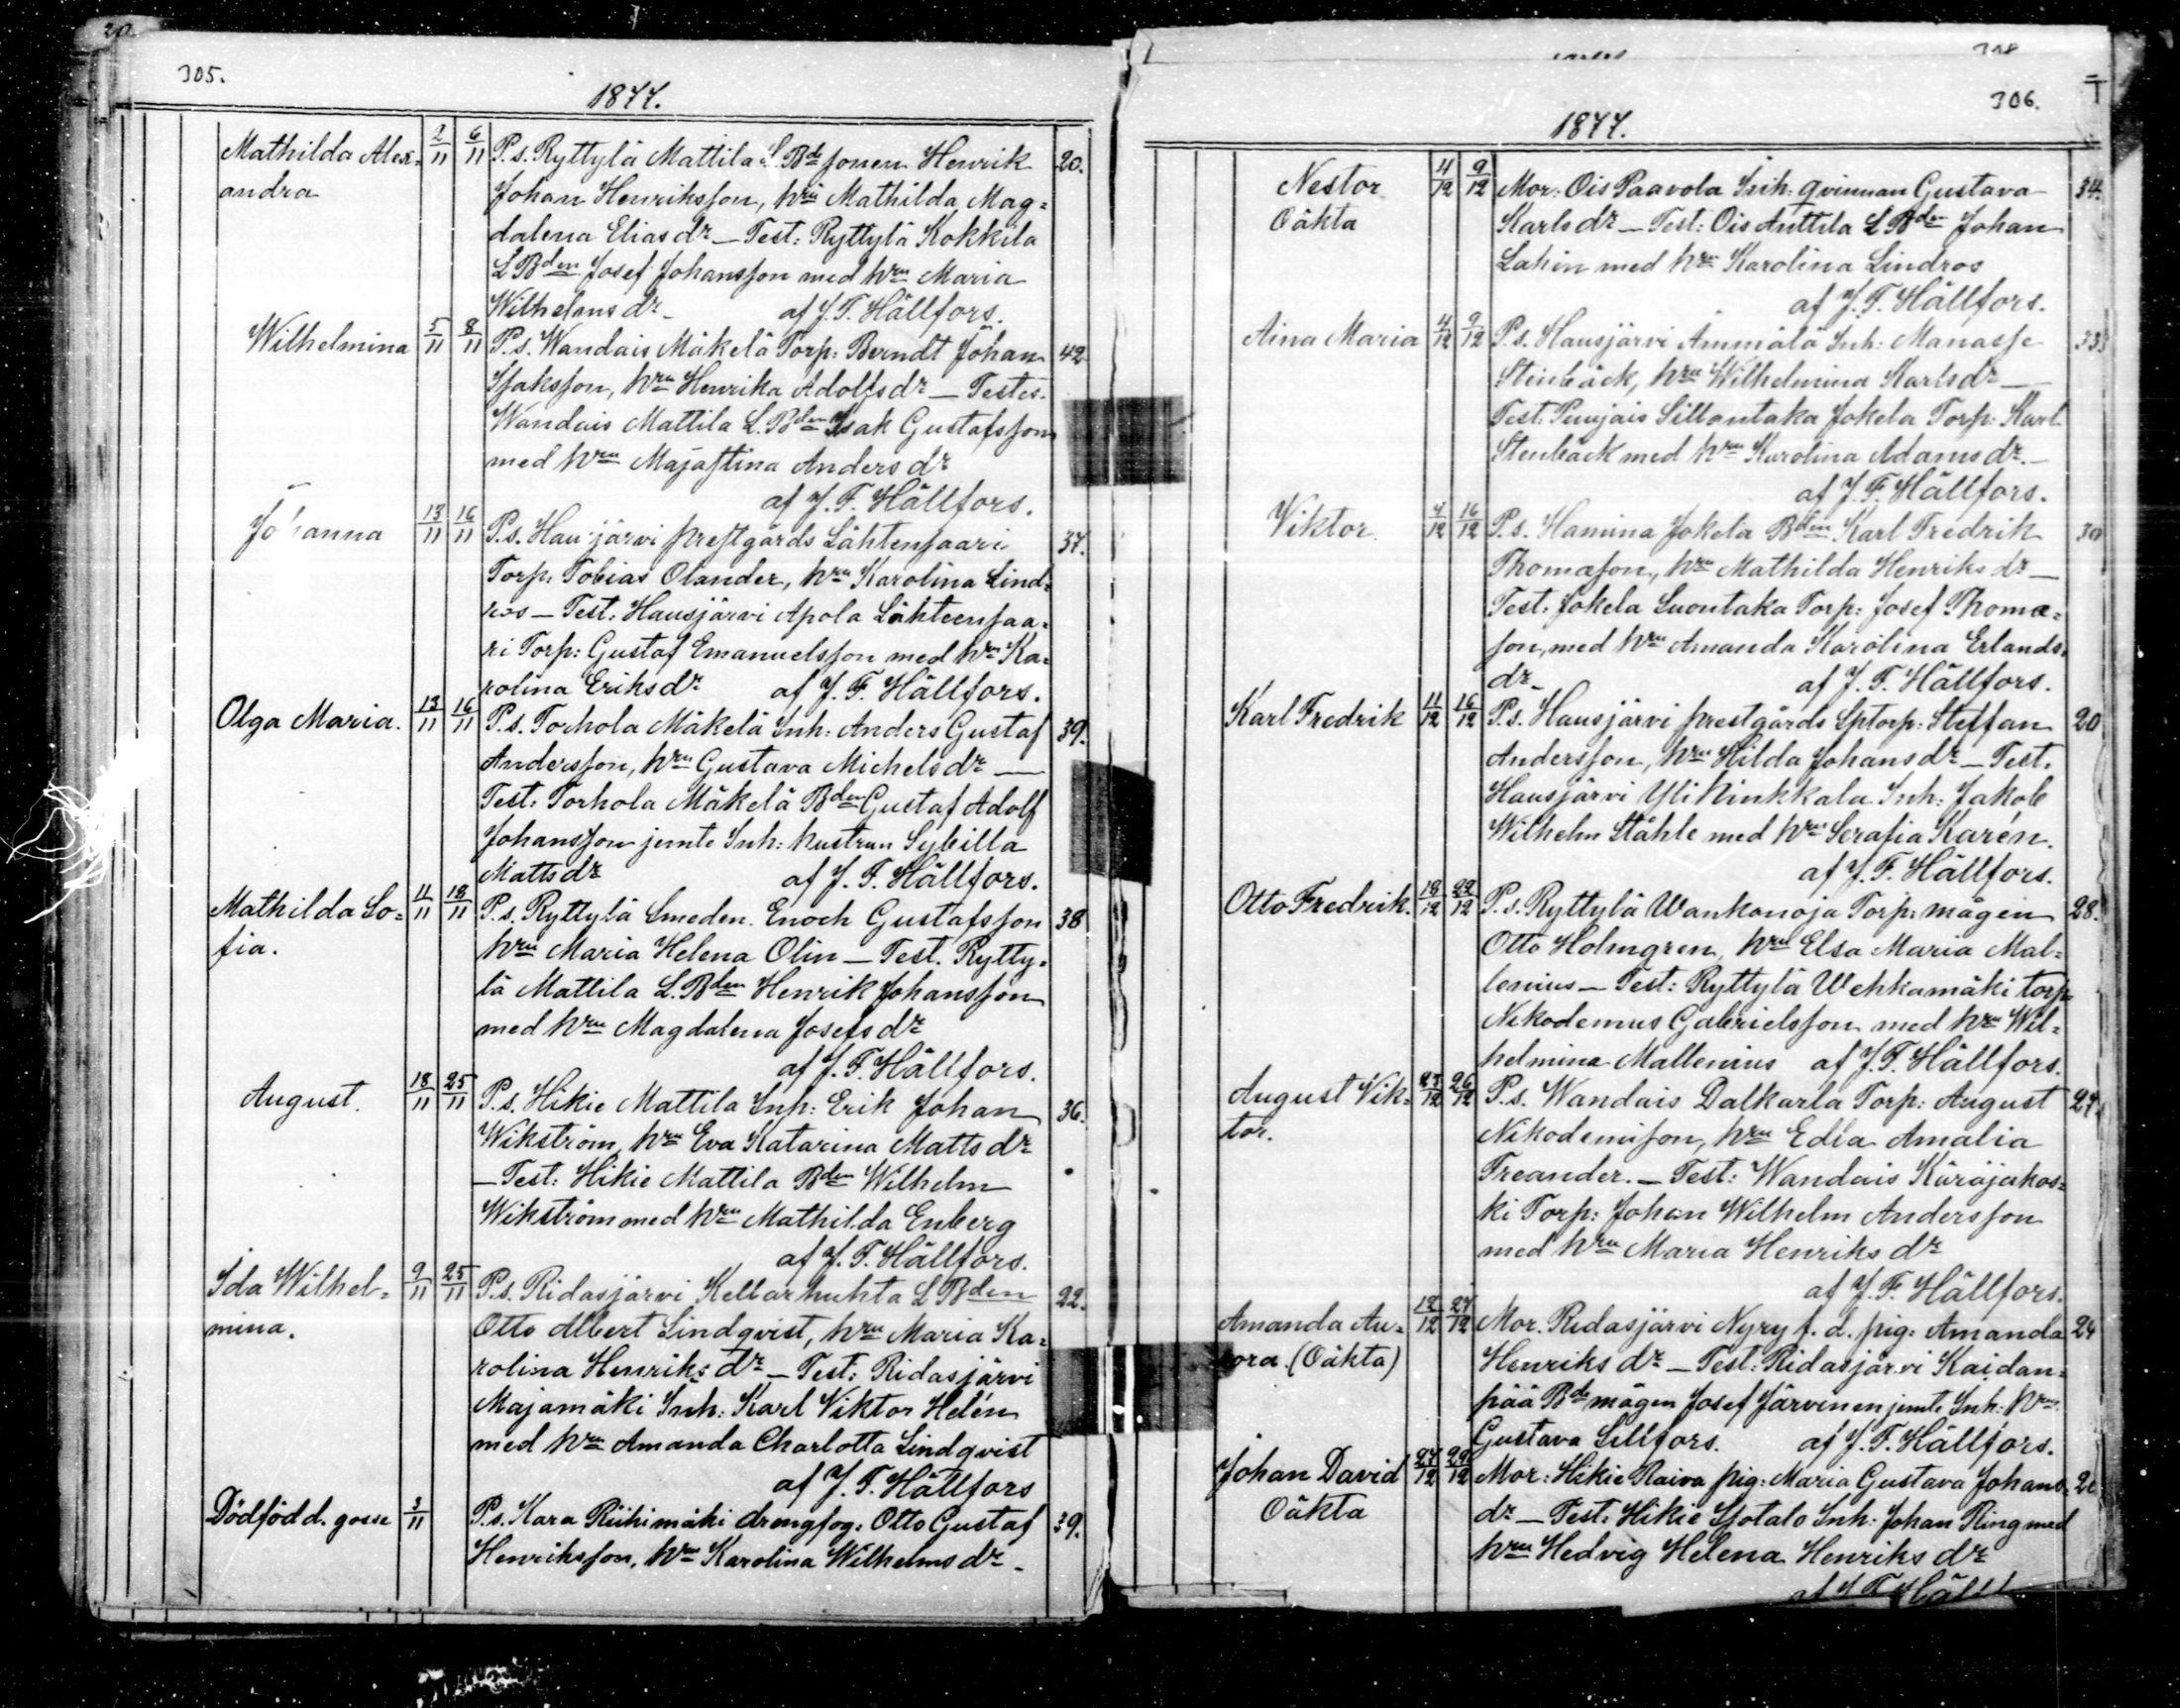 305.
1877.
Mathilda Alex= 2/11 6/11 P.s. Ryttylä Mattila L. Bde sonen Henrik 20.
andra Johan Henriksson, hru Mathilda Mag=
dalena Elias dr — Test: Ryttylä Kokkila
L Bden Josef Johansson med hru Maria
Wilhelms dr — af J. F. Hällfors.
Wilhelmina 5/11 8/11 P.s. Wandais Mäkelä Torp: Berndt Johan 42
Isaksson, hru Henrika Adolfs dr — Testes.
Wandais Mattila L. Bden Isak Gustafsson
med hru Majastina Anders dr
af J. F. Hällfors.
Johanna 13/11 16/11 P.s. Hausjärvi prestgårds Lähtensaari 37.
Torp: Tobias Olander, hru Karolina Lind=
ros — Test: Hausjärvi Apola Lähteensaa=
ri Torp: Gustaf Emanuelsson med hru Ka=
rolina Eriks dr af J. F. Hällfors.
Olga Maria. 13/11 16/11 P.s. Torhola Mäkelä Inh: Anders Gustaf 39.
Andersson, hru Gustava Michels dr —
Test: Torhola Mäkelä Bden Gustaf Adolf
Johansson jemte Inh: hustrun Sybilla
Matts dr af J. F. Hällfors.
Mathilda So= 11/11 18/11 P.s. Ryttylä Smeden Enoch Gustafsson 38
fia. hru Maria Helena Olin — Test. Rytty=
lä Mattila L. Bden Henrik Johansson
med hru Magdalena Josefs dr
af J. F. Hällfors.
August. 18/11 25/11 P.s. Hikie Mattila Inh: Erik Johan 36.
Wikström, hru Eva Katarina Matts dr
— Test: Hikie Mattila Bden Wilhelm
Wikström med hru Mathilda Enberg
af J. F. Hällfors.
Ida Wilhel= 9/11 25/11 P.s. Ridasjärvi Kellarhuhta L Bden 22.
mina. Otto Albert Lindqvist, hru Maria Ka=
rolina Henriks dr — Test: Ridasjärvi
Majamäki Inh: Karl Viktor Helén
med hru Amanda Charlotta Lindqvist
af J. F. Hällfors
Dödfödd. gosse 3/11 P.s. Kara Riihimäki drengfog: Otto Gustaf 39.
Henriksson, hru Karolina Wilhelms dr —
306.
1877.
Nestor 4/12 9/12 Mor: Ois Paavola Inh: qvinnan Gustava 34.
Oäkta Karls dr — Test: Ois Anttila L Bden Johan
Lahin med hru Karolina Lindros
af J. F. Hällfors.
Aina Maria 4/12 9/12 P.s. Hausjärvi Ämmälä Inh: Manasse 33
Stenbäck, hru Wilhelmina Karls dr —
Test: Puujais Sillantaka Jokela Torp: Karl
Stenbäck med hru Karolina Adams dr. —
af J. F. Hällfors.
Viktor. 4/12 16/12 P.s. Hamina Jokela Bden Karl Fredrik 30
Thomasson, hru Mathilda Henriks dr —
Test: Jokela Luontaka Torp: Josef Thoma=
son, med hru Amanda Karolina Erlands
dr — af J. F. Hällfors.
Karl Fredrik 11/12 16/12 P.s. Hausjärvi prestgårds Sptorp: Steffan 20
Andersson, hru Hilda Johans dr — Test.
Hausjärvi Yli Kinkkala Inh: Jakob
Wilhelm Ståhle med hru Serafia Karén.
af J. F. Hällfors.
Otto Fredrik. 18/12 22/12 P.s. Ryttylä Wankanoja Torp: mågen 28.
Otto Holmgren, hru Elsa Maria Mal=
lenius — Test: Ryttylä Wehkamäki torp:
Nikodemus Gabrielsson med hru Wil=
helmina Mallenius af J. F. Hällfors.
August Vik= 23/12 26/12 P.s. Wandais Dalkarla Torp: August 27.
tor. Nikodemison, hru Edla Amalia
Freander. — Test: Wandais Käräjäkos=
ki Torp: Johan Wilhelm Andersson
med hru Maria Henriks dr
af J. F. Hällfors.
Amanda Au= 12/12 27/12 Mor. Ridasjärvi Nyry f. d. pig: Amanda 24
rora. (Oäkta) Henriks dr — Test: Ridasjärvi Kaidan=
pää Bde mågen Josef Järvinen jemte Inh: hru
Gustava Sillfors. af J. F. Hällfors.
Johan David 27/12 29/12 Mor: Hikie Raiva pig: Maria Gustava Johans
Oäkta dr — Test: Hikie Isotalo Inh: Johan Ring med
hru Hedvig Helena Henriks dr
af J. F. Häll